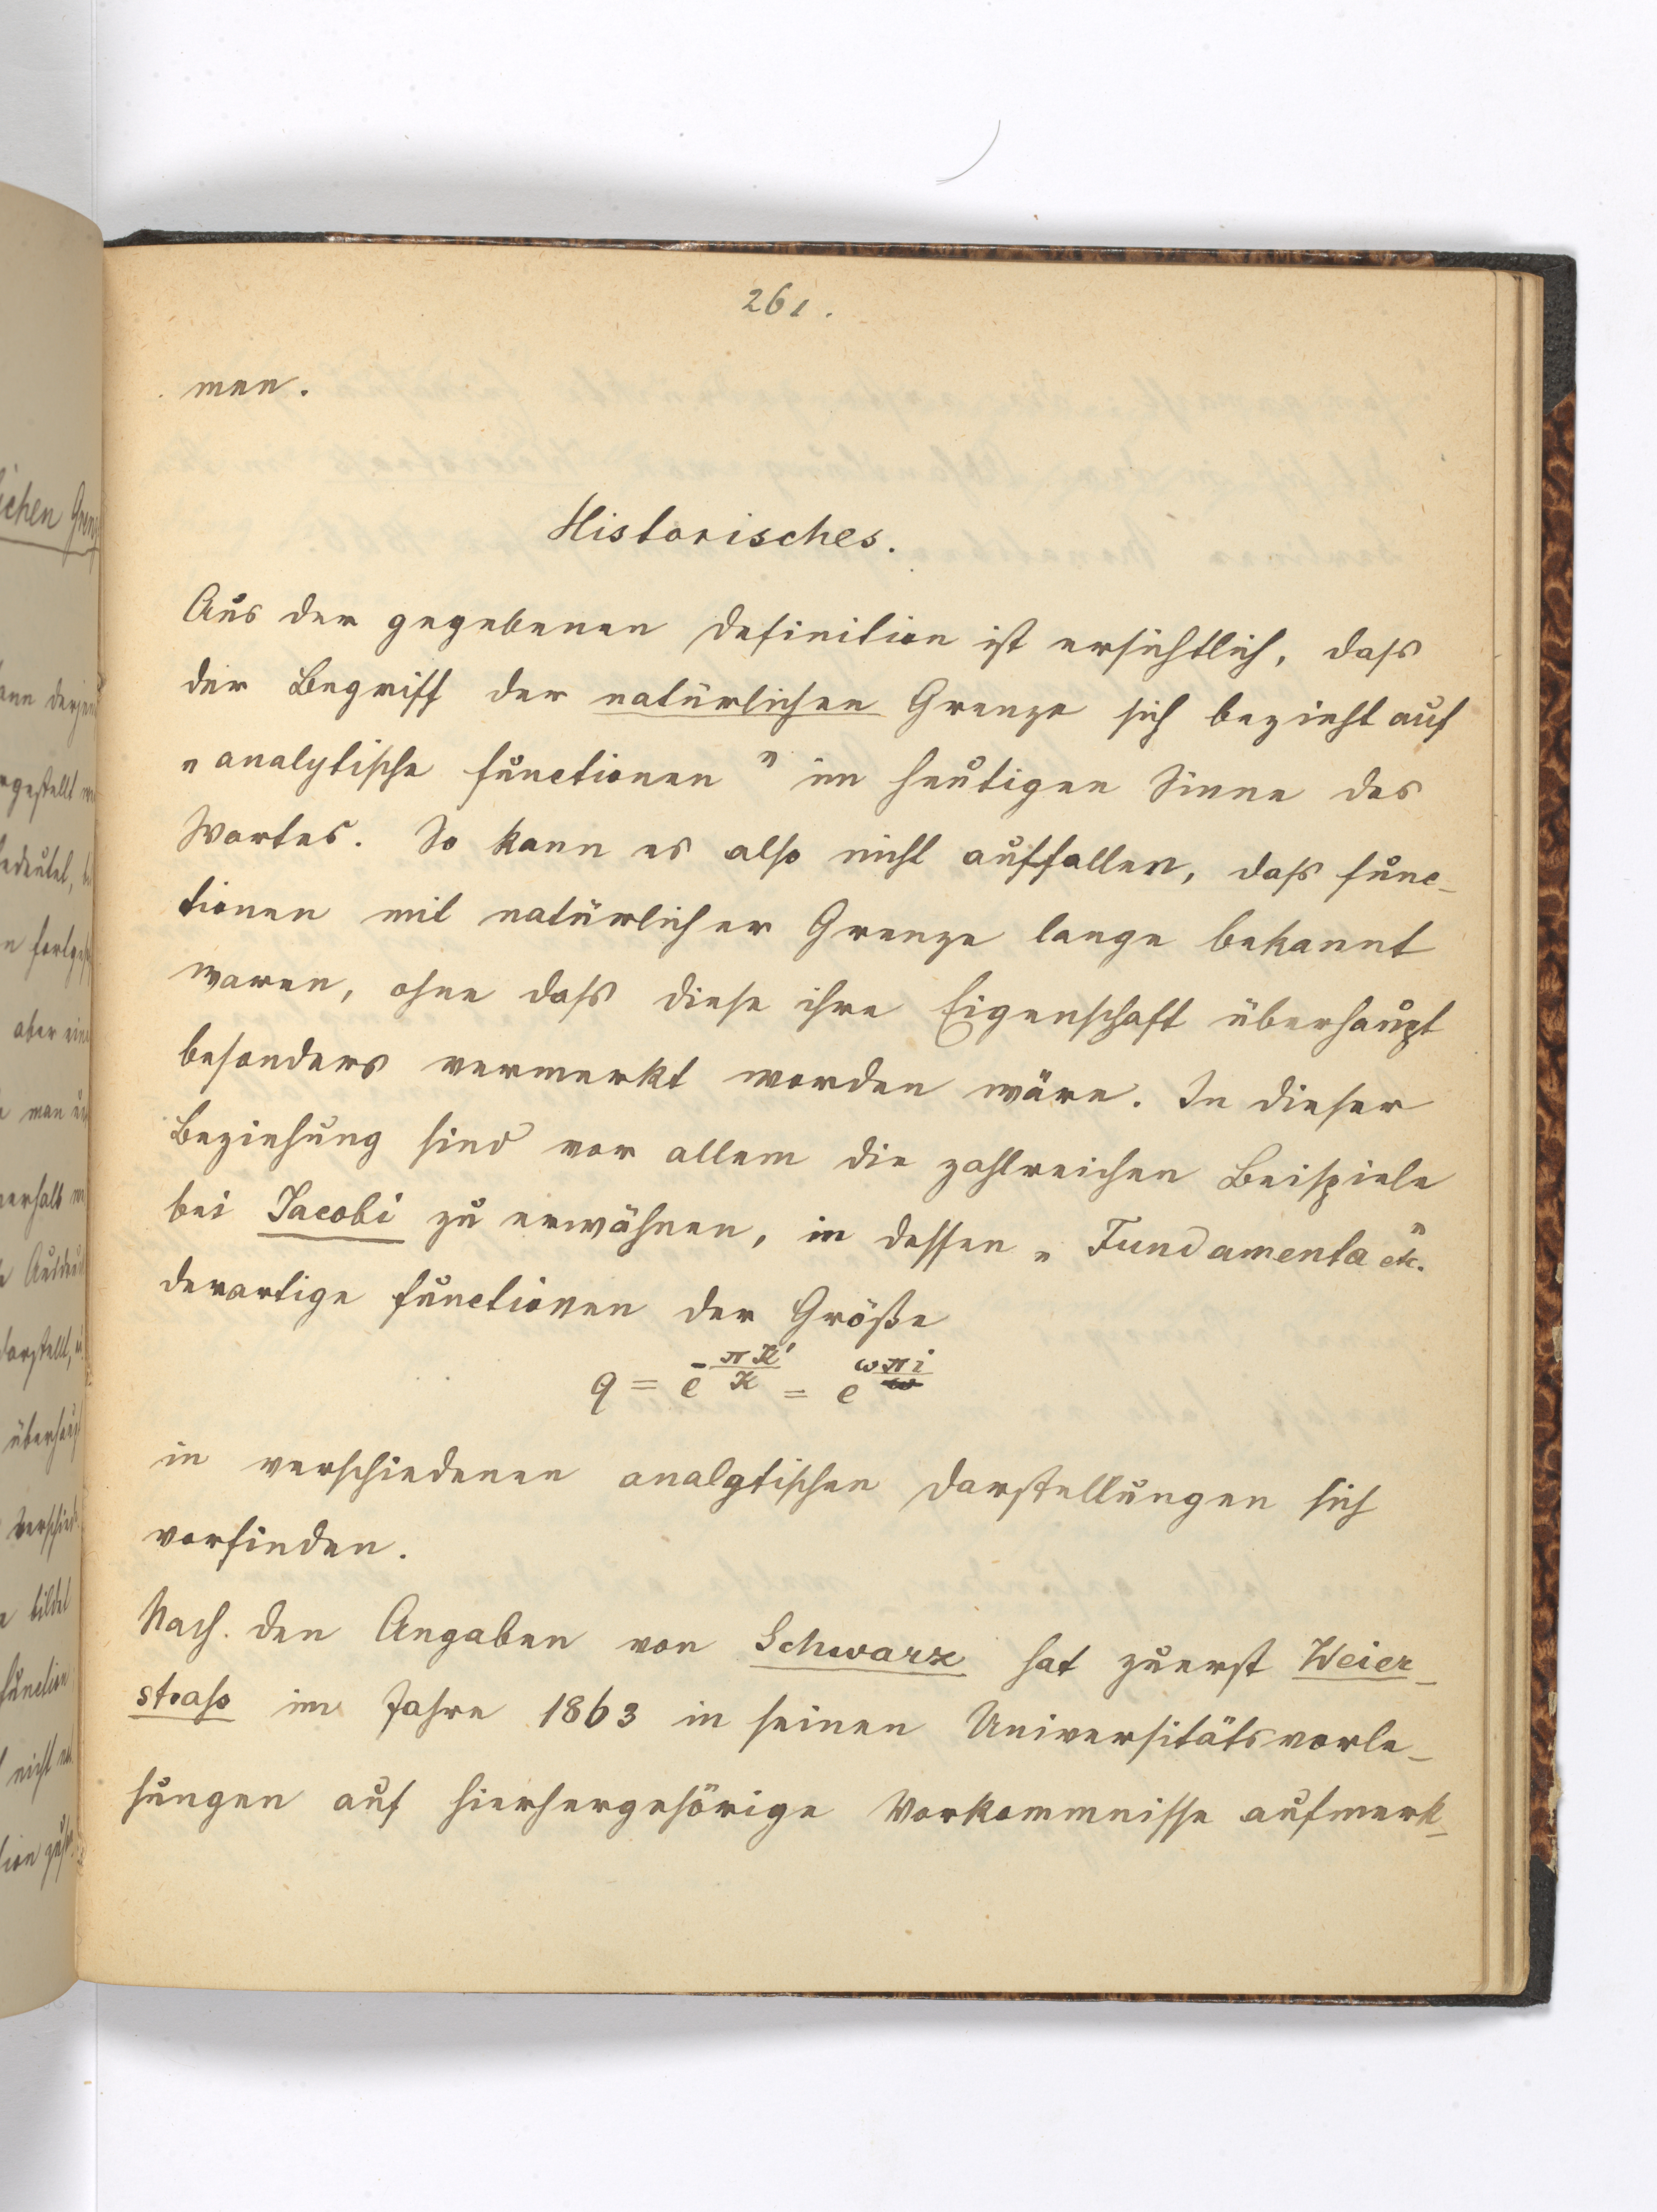 261.
men.
Historisches.
Aus der gegebenen Definition ist ersichtlich, daſs
der Begriff der natürlichen Grenze sich bezieht auf
„analytische Functionen" im heutigen Sinne des
Wortes. So kann es also nicht auffallen, daſs Func-
tionen mit natürlicher Grenze lange bekannt
waren, ohne daſs diese ihre Eigenschaft überhaupt
besonders vermerkt worden wäre. In dieser
Beziehung sind vor allem die zahlreichen Beispiele
bei Jacobi zu erwähnen, in dessen „Fundamenta etc."
derartige Functionen der Größe
q = e^{-πK'/K} = e^{ωπi}
in verschiedenen analytischen Darstellungen sich
vorfinden.
Nach den Angaben von Schwarz hat zuerst Weier-
straſs im Jahre 1863 in seinen Universitätsvorle-
sungen auf hierhergehörige Vorkommnisse aufmerk-